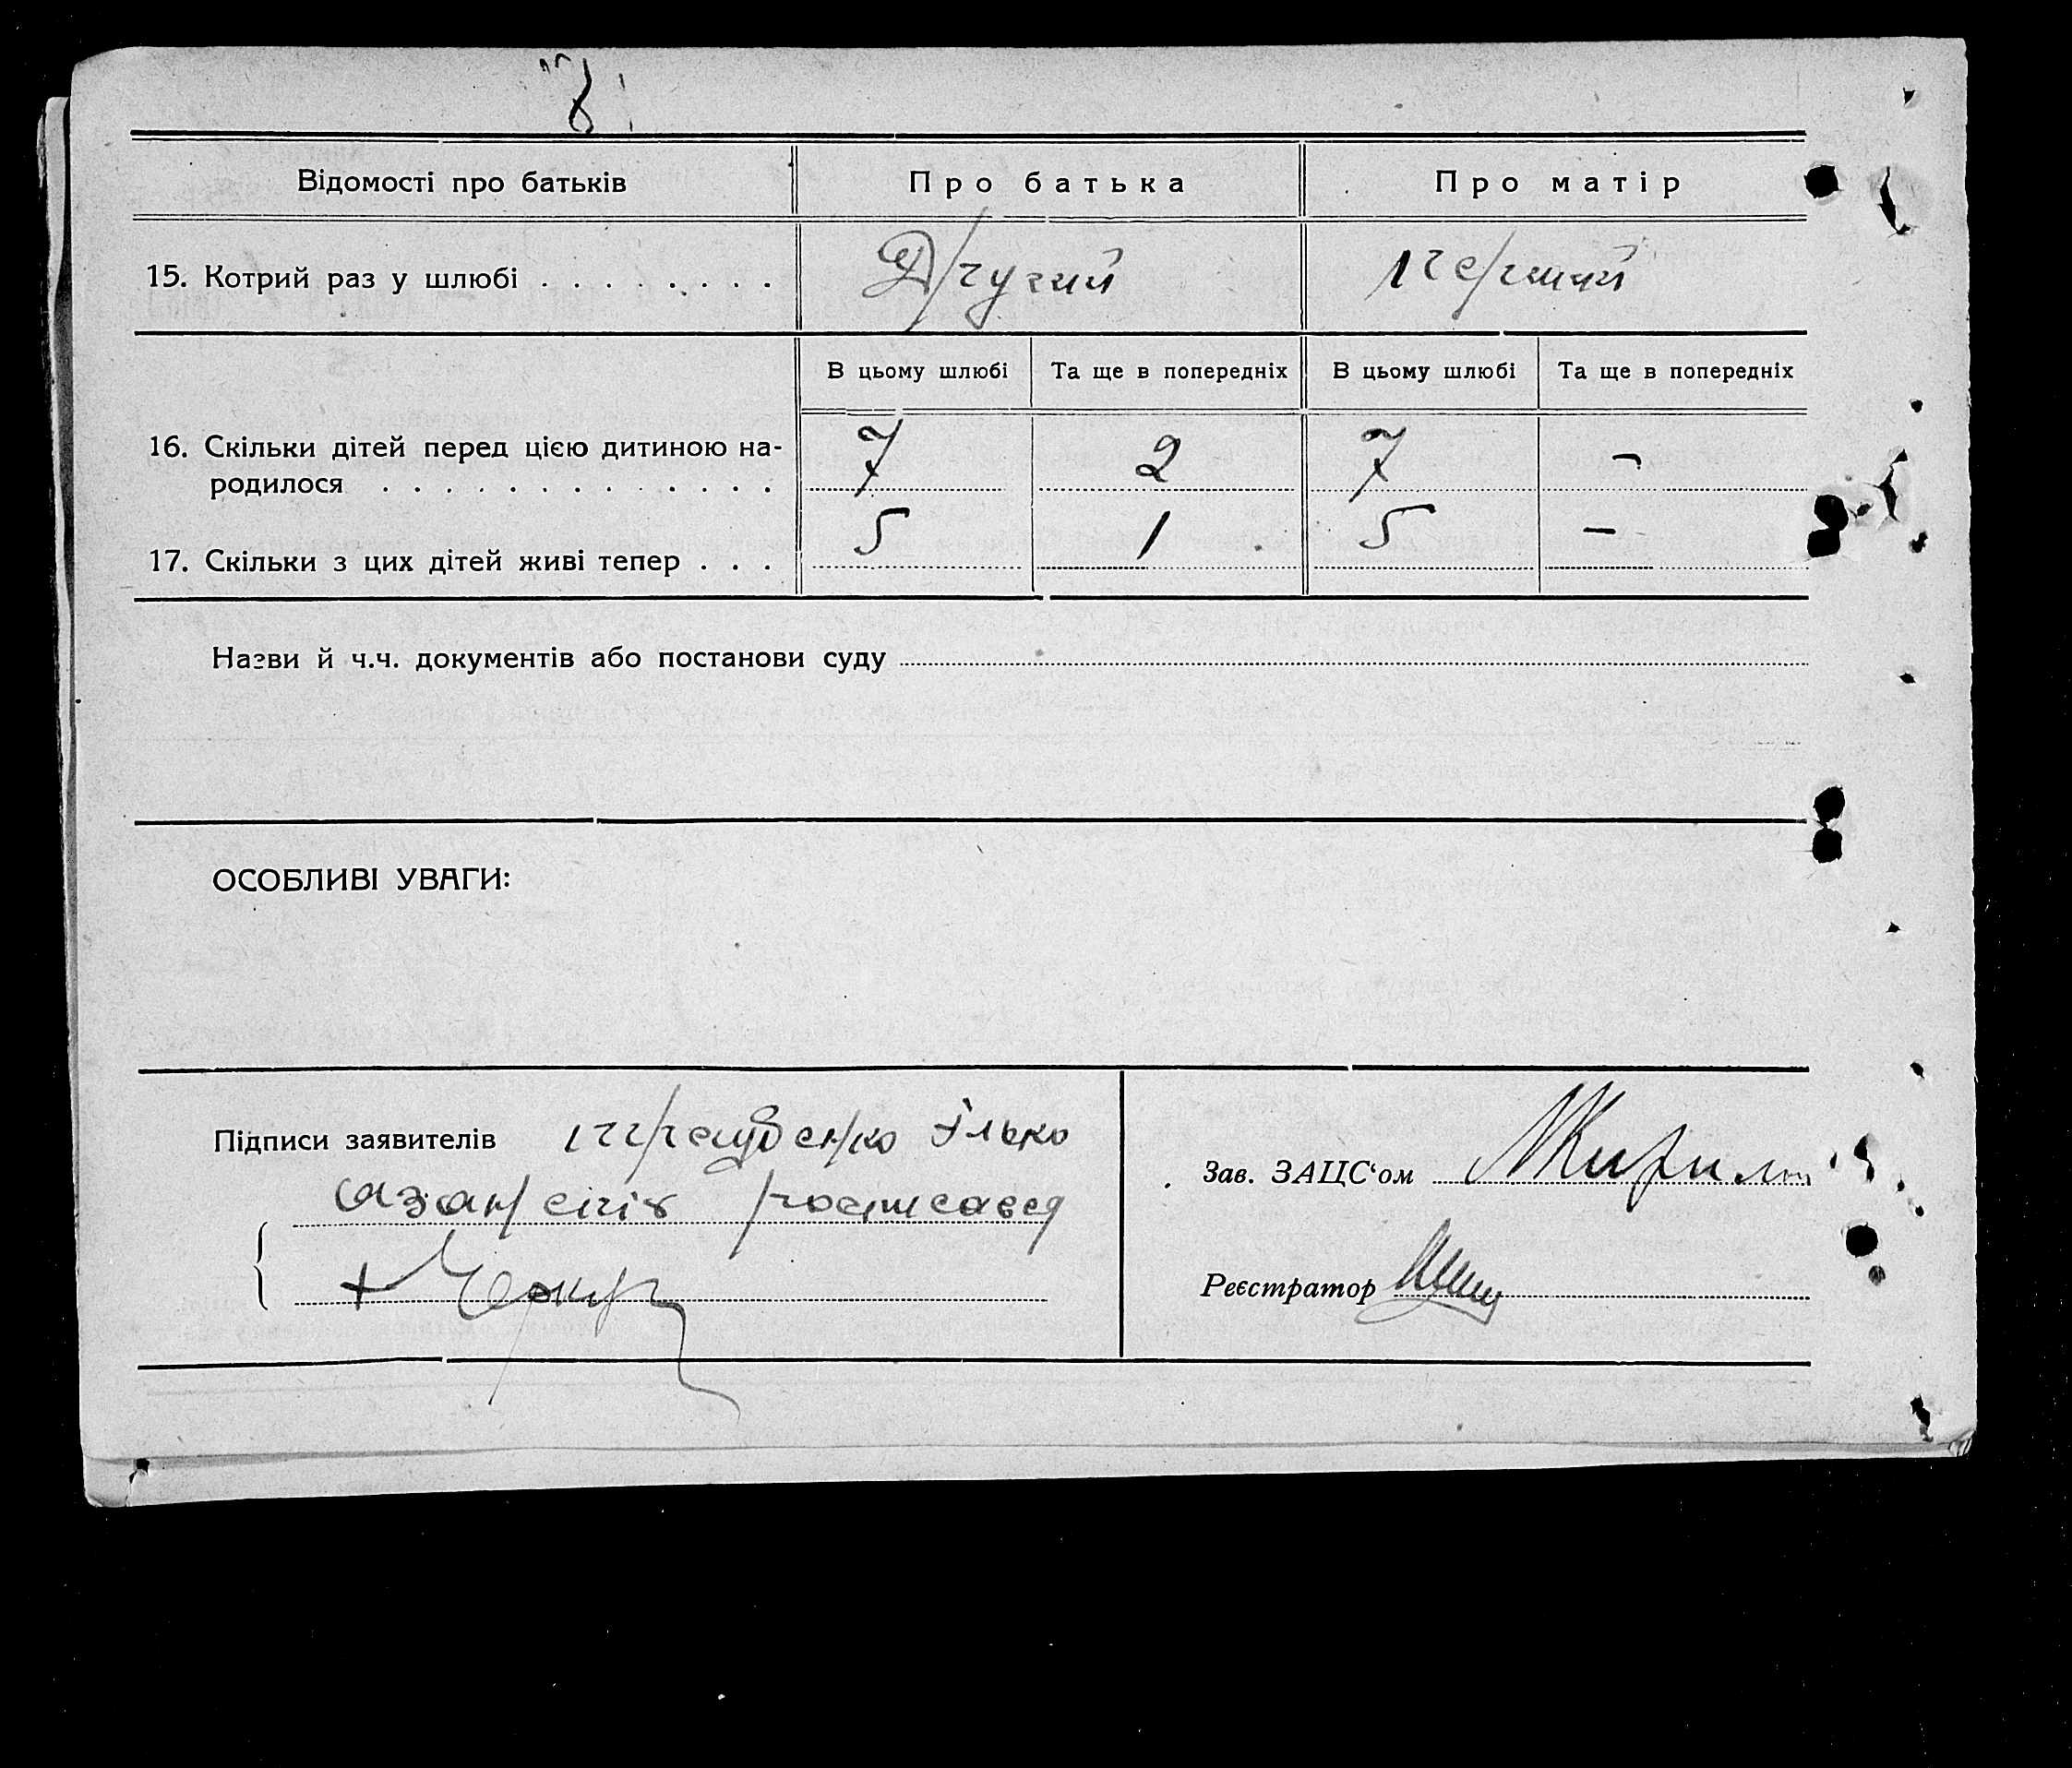 8
Відомості про батьків Про батька Про матір
15. Котрий раз у шлюбі . . . . . . . . Другий перший
В цьому шлюбі Та ще в попередніх В цьому шлюбі Та ще в попередніх
16. Скільки дітей перед цією дитиною на-
родилося . . . . . . . . . . . . . . 7 2 7 -
17. Скільки з цих дітей живі тепер . . . 5 1 5 -
Назви й ч.ч. документів або постанови суду
ОСОБЛИВІ УВАГИ:
Підписи заявителів Ілько
Зав. ЗАЦС'ом
Реєстратор